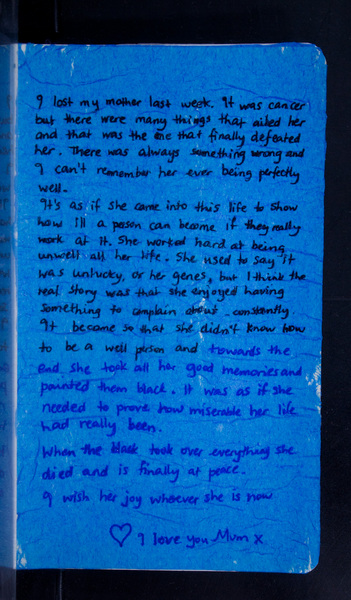 I lost my mother last week. It was cancer
but there were many things that ailed her
and that was the one that finally defeated
her. There was always something wrong and
I can't remember her ever being perfectly
well.
It's as if she came into this life to show
how ill a person can become if they really
work at it. She worked hard at being
unwell all her life. She used to say it
was unlucky, or her genes, but I think the
real story was that she enjoyed having
something to complain about constantly.
It became so that she didn't know how
to be a well person and towards the
end she took all her good memories and
painted them black. It was as if she
needed to prove how miserable her life
had really been.
When the black took over everything she
died and is finally at peace.
I wish her joy whoever she is now
♡ I love you Mum x